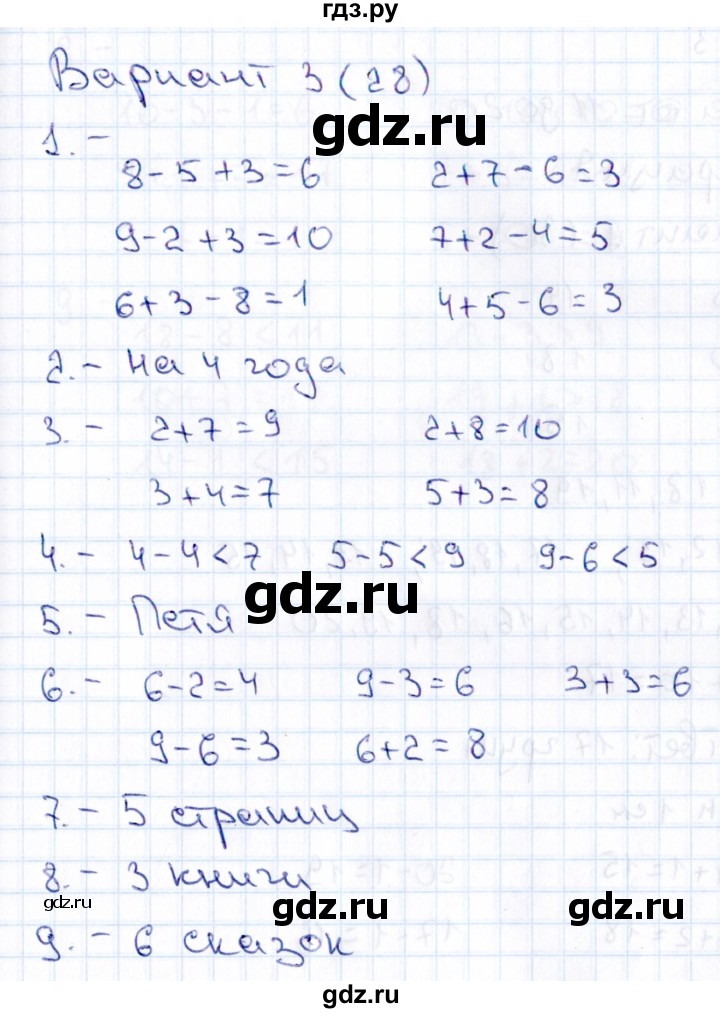 гдз.ру
Вариант 3 (28)
gdz.ru
1. -
8 - 5 + 3 = 6 2 + 7 - 6 = 3
9 - 2 + 3 = 10 7 + 2 - 4 = 5
6 + 3 - 8 = 1 4 + 5 - 6 = 3
2. - На 4 года
3. - 2 + 7 = 9 2 + 8 = 10
3 + 4 = 7 5 + 3 = 8
4. - 4 - 4 < 7 5 - 5 < 9 9 - 6 < 5
gdz.ru
5. - Петя
6. - 6 - 2 = 4 9 - 3 = 6 3 + 3 = 6
9 - 6 = 3 6 + 2 = 8
7. - 5 страниц
8. - 3 книги
gdz.ru gdz.ru gdz.ru
9. - 6 сказок
gdz.ru